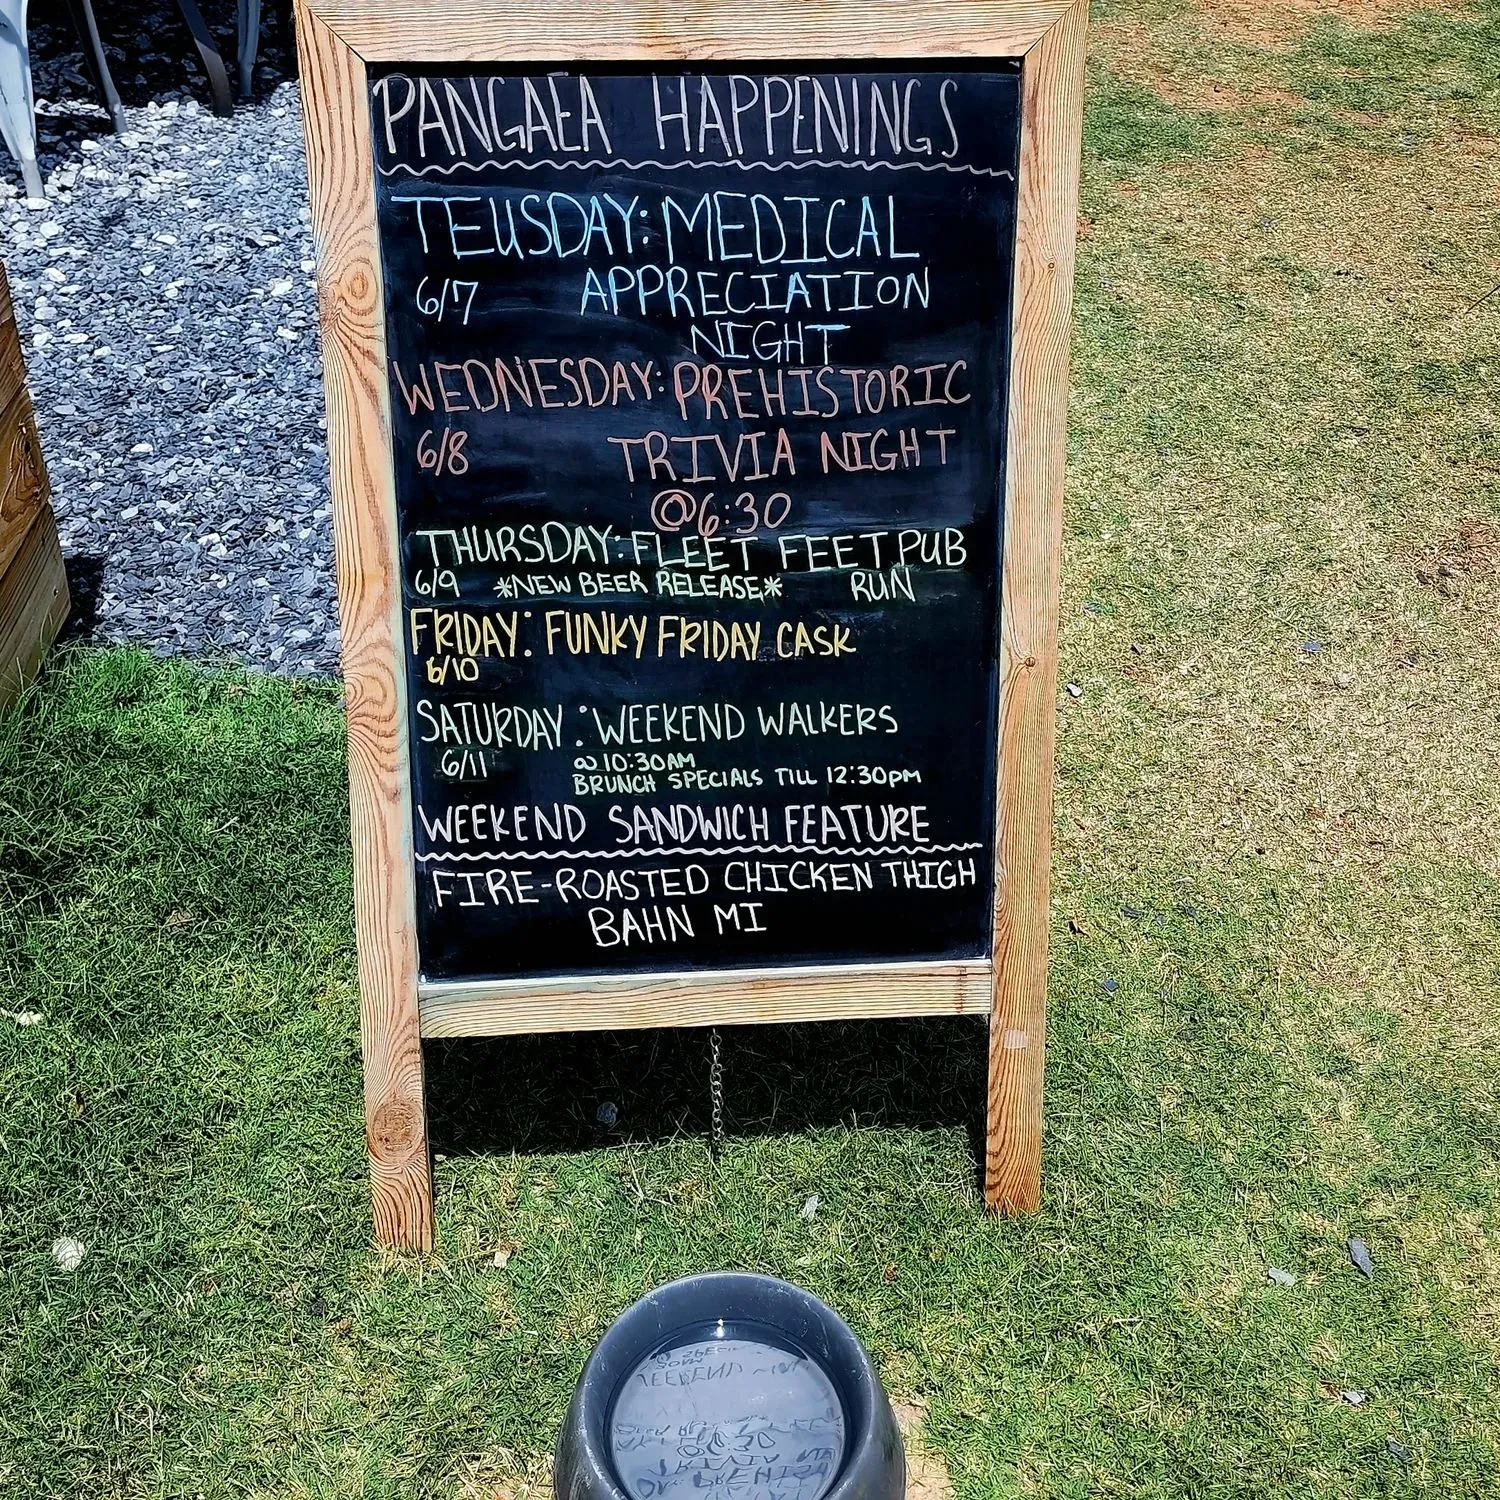 PANGAEA HAPPENINGS
TEUSDAY: MEDICAL
6/7 APPRECIATION
NIGHT
WEDNESDAY: PREHISTORIC
6/8 TRIVIA NIGHT
@6:30
THURSDAY: FLEET FEET PUB
6/9 *NEW BEER RELEASE* RUN
FRIDAY: FUNKY FRIDAY CASK
6/10
SATURDAY: WEEKEND WALKERS
6/11 @ 10:30AM
BRUNCH SPECIALS TILL 12:30PM
WEEKEND SANDWICH FEATURE
FIRE-ROASTED CHICKEN THIGH
BAHN MI